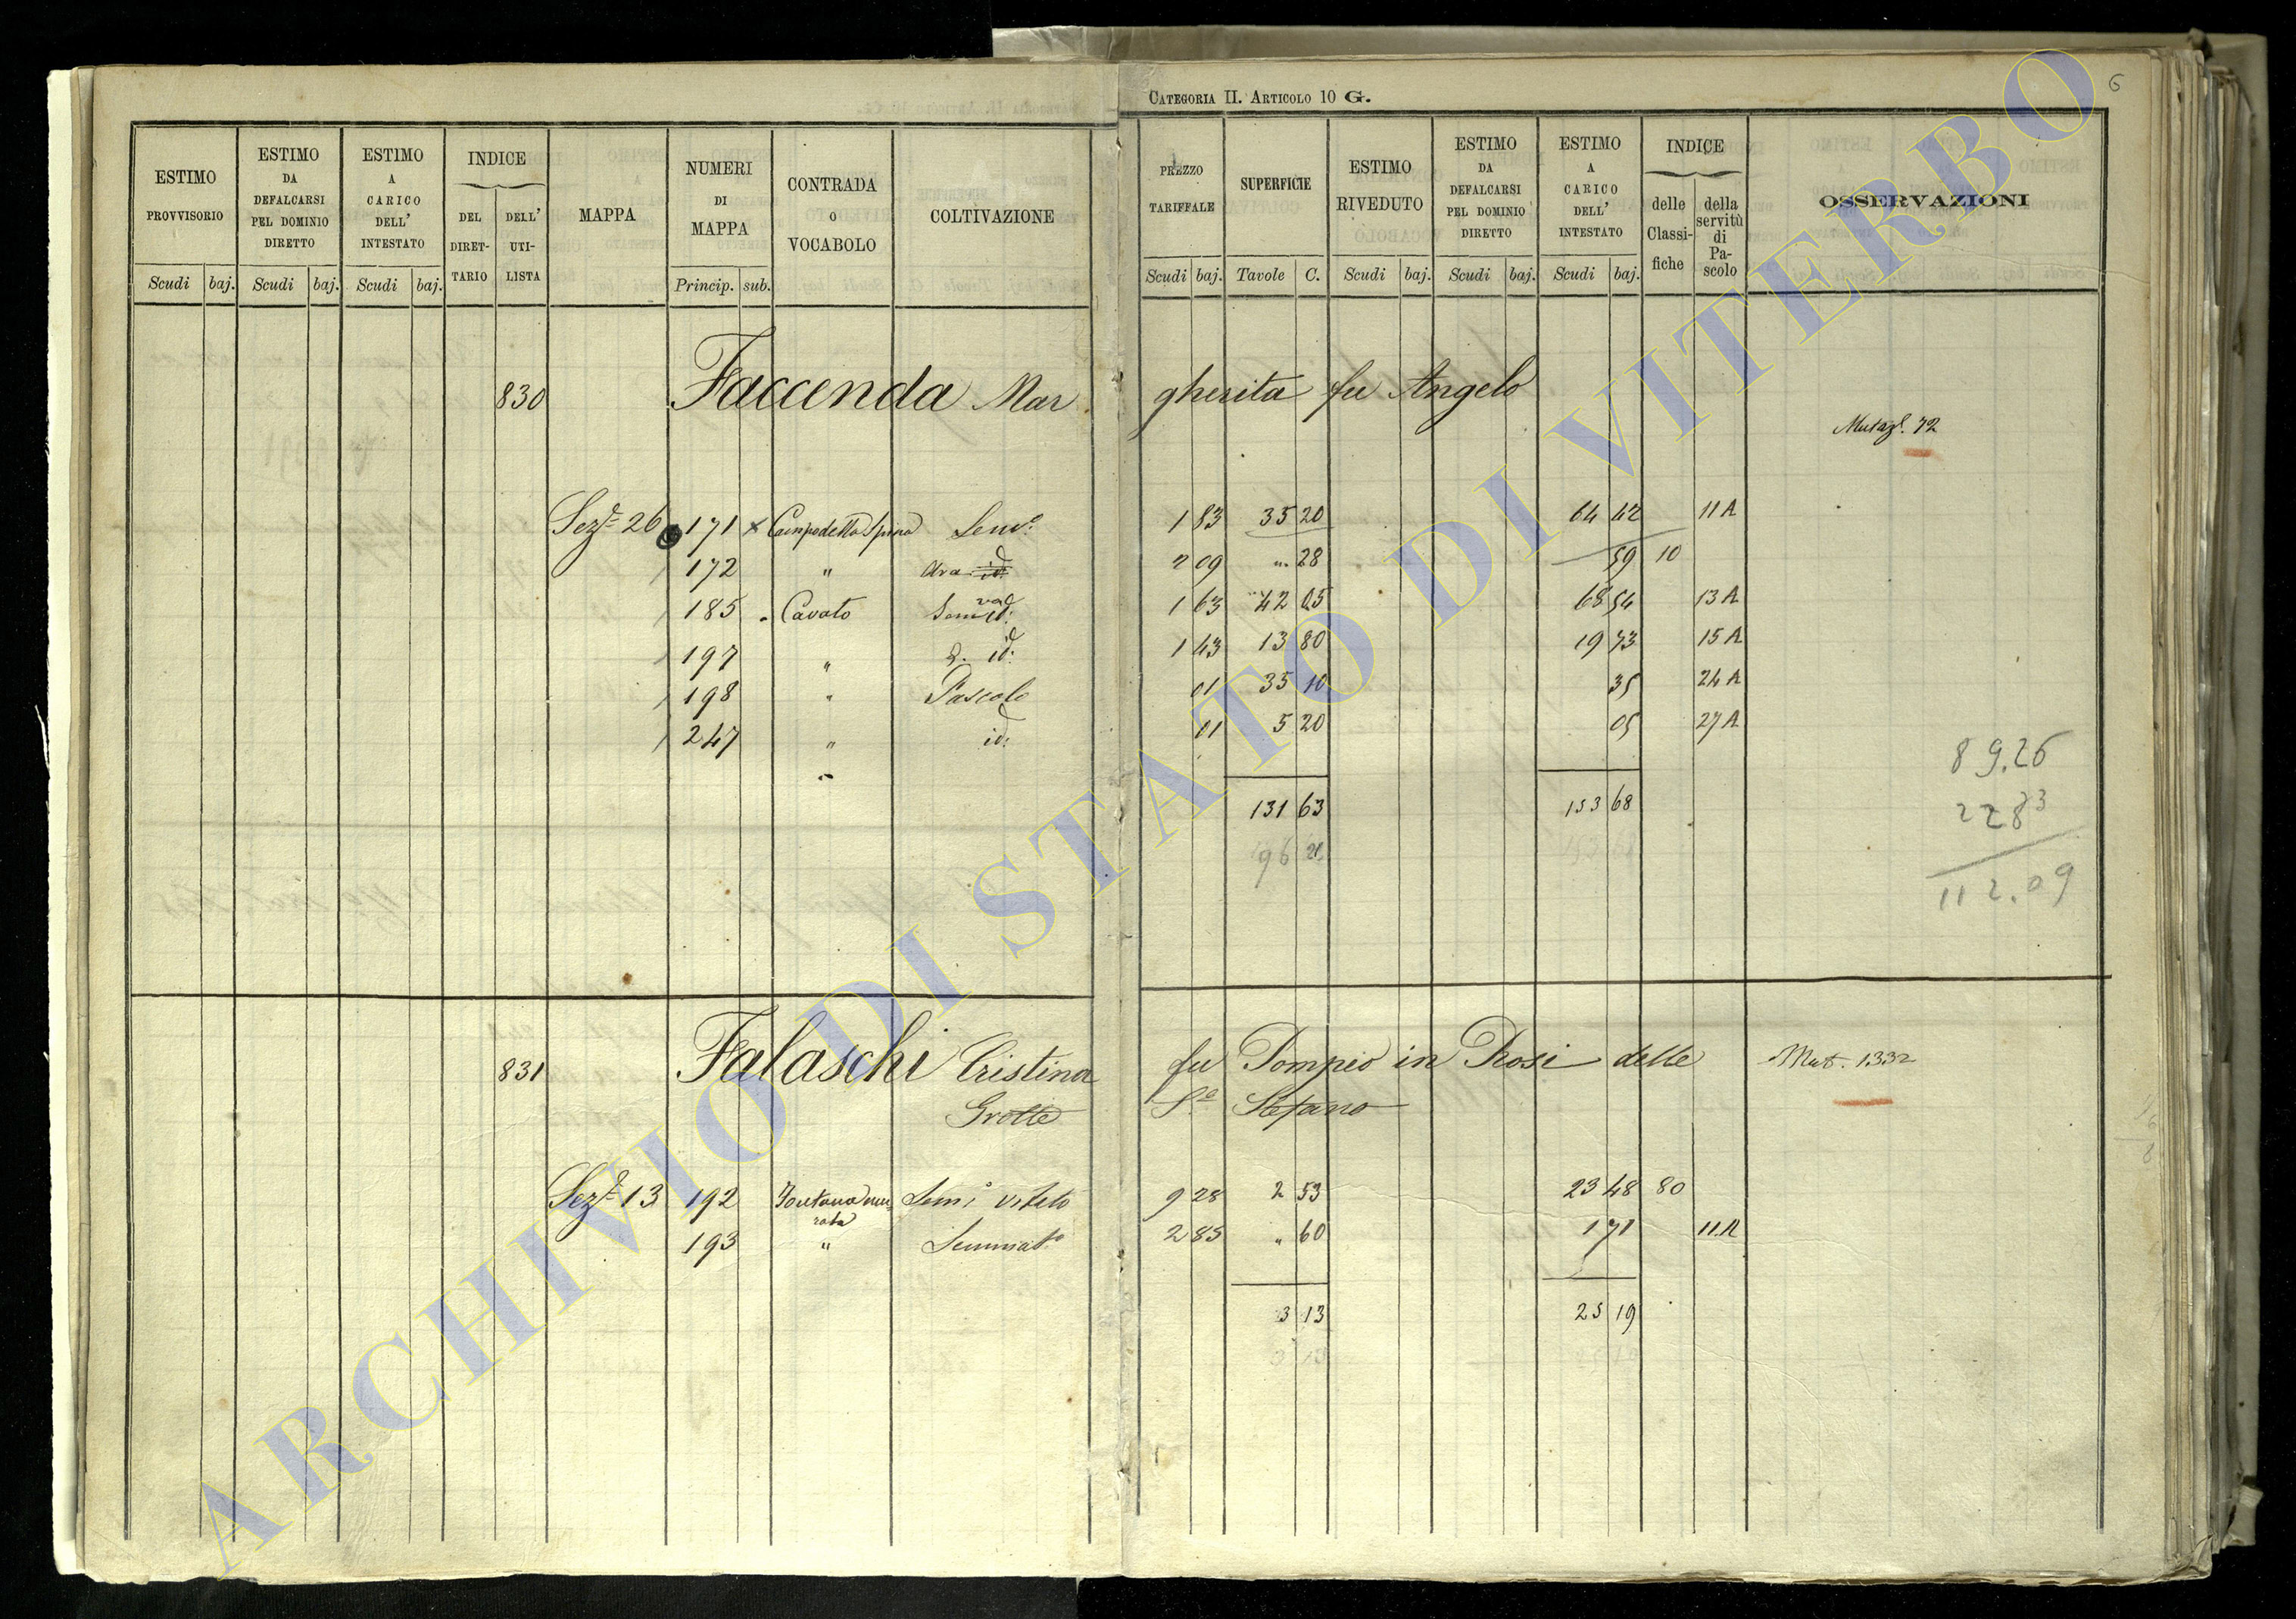 CATEGORIA II. ARTICOLO 10 G.
6
ESTIMO PROVVISORIO Scudi baj.
ESTIMO DA DEFALCARSI PEL DOMINIO DIRETTO Scudi baj.
ESTIMO A CARICO DELL' INTESTATO Scudi baj.
INDICE DEL DIRET-TARIO DELL' UTI-LISTA
MAPPA
NUMERI DI MAPPA Princip. sub.
CONTRADA O VOCABOLO
COLTIVAZIONE
PREZZO TARIFFALE Scudi baj.
SUPERFICIE Tavole C.
ESTIMO RIVEDUTO Scudi baj.
ESTIMO DA DEFALCARSI PEL DOMINIO DIRETTO Scudi baj.
ESTIMO A CARICO DELL' INTESTATO Scudi baj.
INDICE delle Classi-fiche della servitù di Pa-scolo
OSSERVAZIONI
830 Faccenda Mar gherita fu Angelo
Mutaz. 72
Sez. 26 171 x Campo della Spina Sem.o 1 83 35 20 64 42 11 A
172 " Ara 2 09 " 28 59 10
185 Cavato 1 63 42 05 68 54 13 A
197 " id: 1 43 13 80 19 73 15 A
198 " Pascolo 01 35 10 35 24 A
247 " id: 01 5 20 05 27 A
131 63 153 68
96
89.26
22 83
112.09
831 Falaschi Cristina fu Pompeo in Rosi delle
Grotte S.o Stefano
Mut. 1332
Sez. 13 192 Fontana murata Sem.o Vitato 9 28 2 53 23 48 80
193 " Seminat.o 2 85 " 60 1 71 11.A
3 13 25 19
3 13
ARCHIVIO DI STATO DI VITERBO